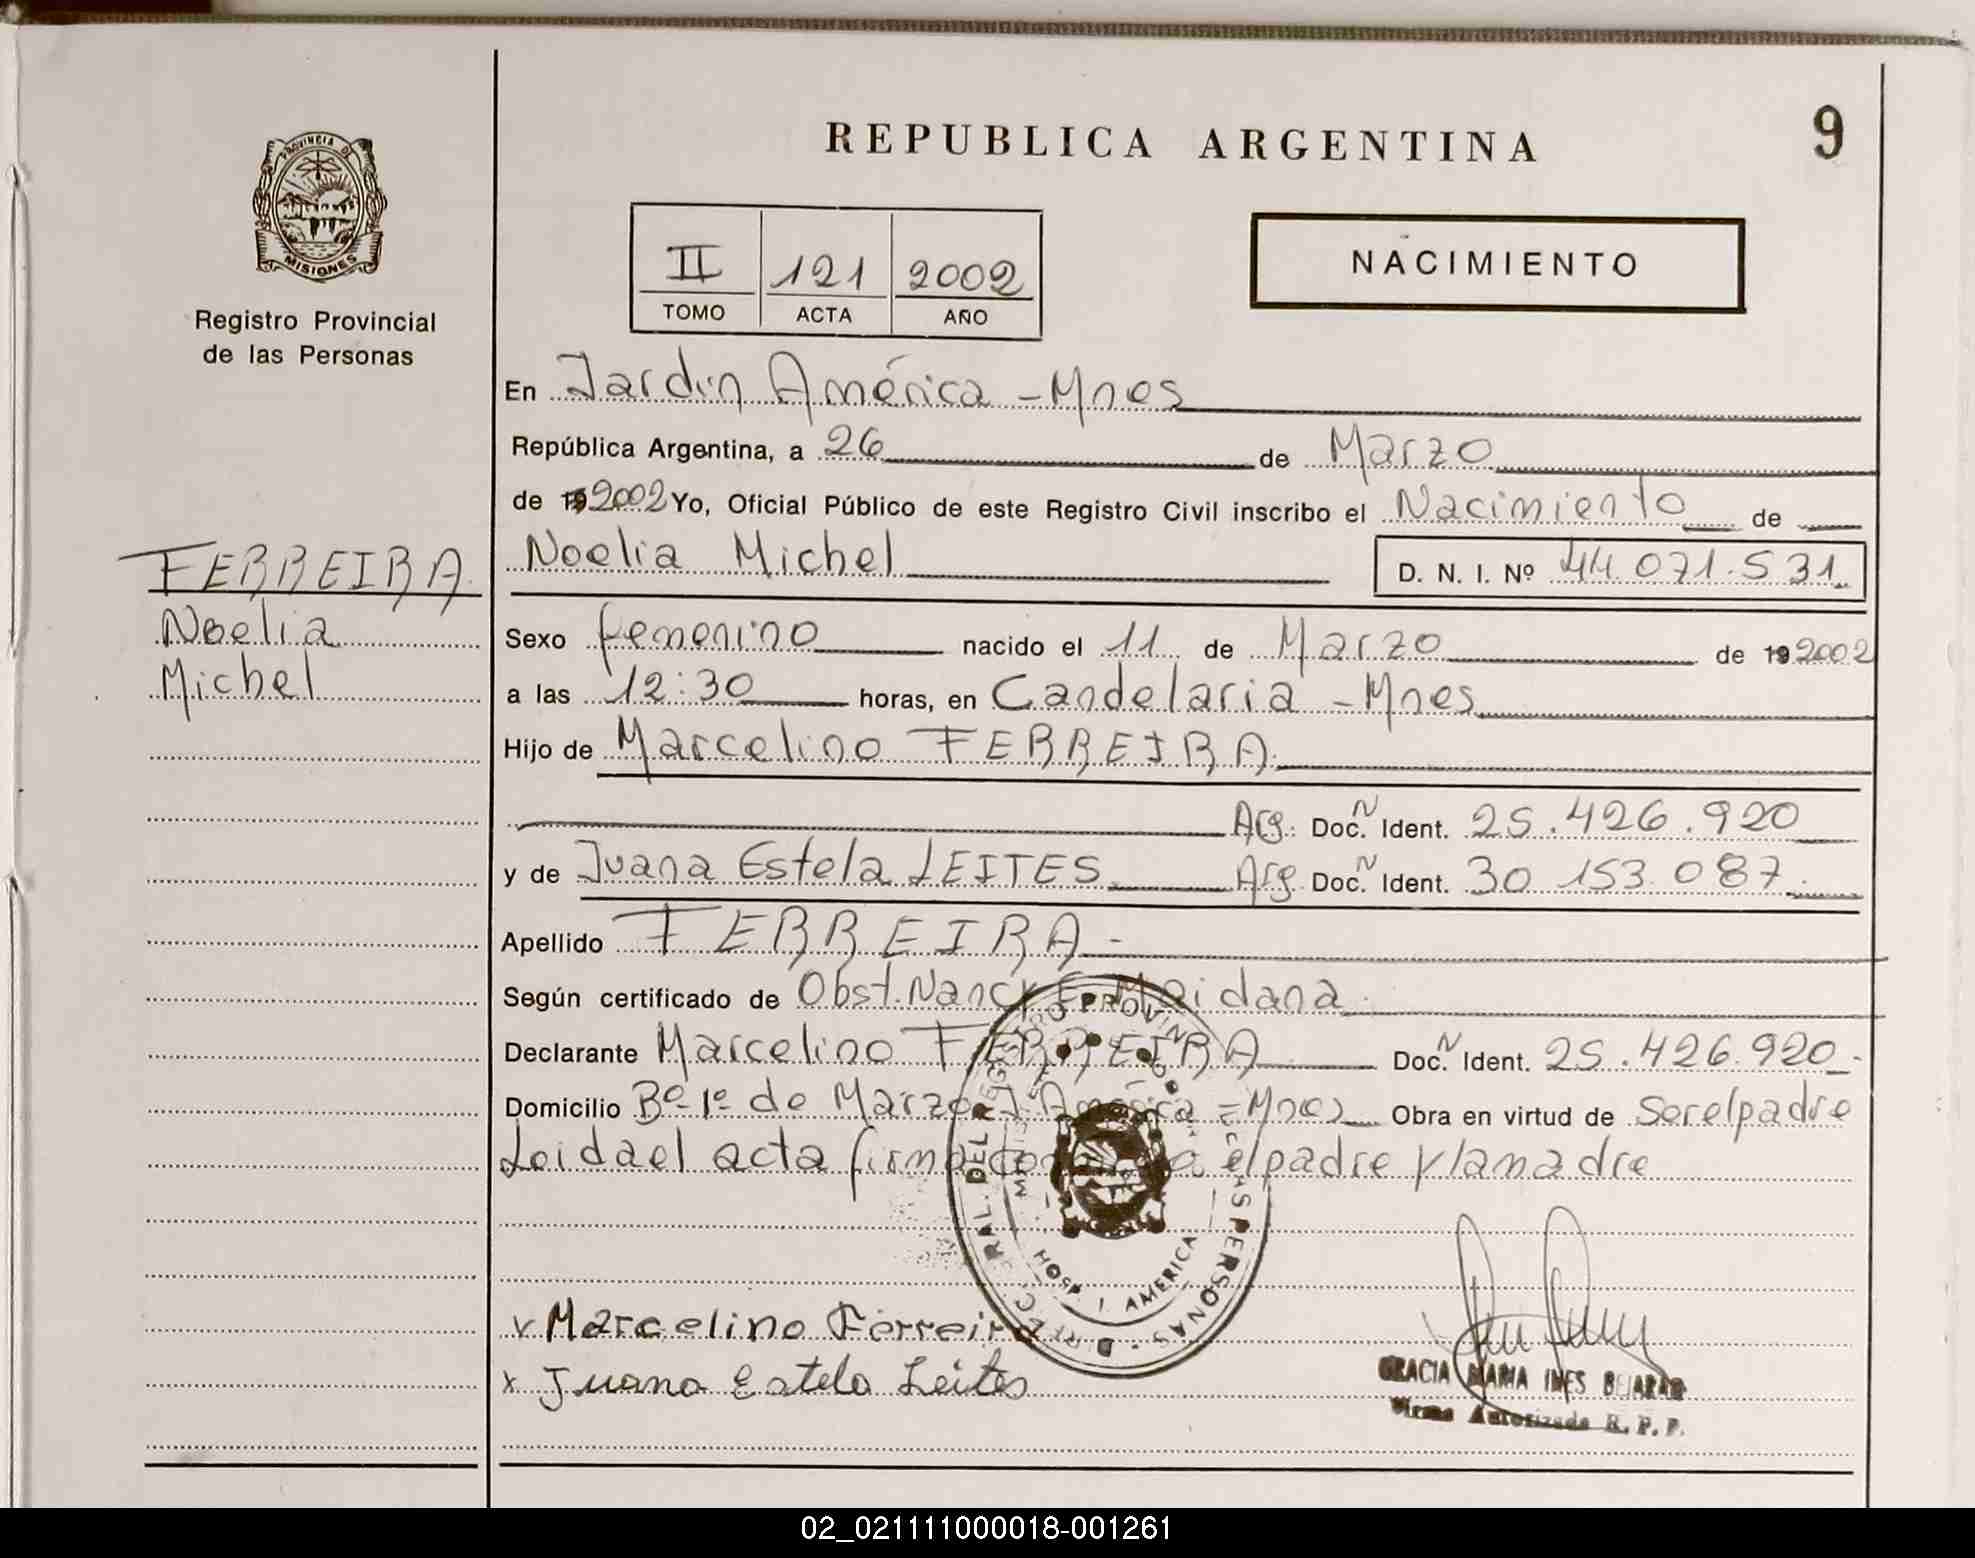 REPUBLICA ARGENTINA
9
PROVINCIA DE
MISIONES
Registro Provincial
de las Personas
II 121 2002
TOMO ACTA AÑO
NACIMIENTO
En Jardin América - Mnes
República Argentina, a 26 de Marzo
de 19 2002 Yo, Oficial Público de este Registro Civil inscribo el Nacimiento de
Noelia Michel D. N. I. Nº 44.071.531
FERREIRA
Noelia
Michel
Sexo femenino nacido el 11 de Marzo de 19 2002
a las 12:30 horas, en Candelaria - Mnes
Hijo de Marcelino FERREIRA
Arg. Doc. N Ident. 25.426.920
y de Juana Estela LEITES Arg. Doc. N Ident. 30.153.087
Apellido FERREIRA
Según certificado de Obst. Nancy E. Maidana
Declarante Marcelino FERREIRA Doc. N Ident. 25.426.920
Domicilio Bº 1º de Marzo J. América - Mnes Obra en virtud de ser el padre
Leida el acta firma el padre y la madre
Marcelino Ferreira
x Juana Estela Leites
HOSP. J. AMERICA
GRACIA MARIA INES BEJARANO
Firma Autorizada R. P. P.
02_021111000018-001261